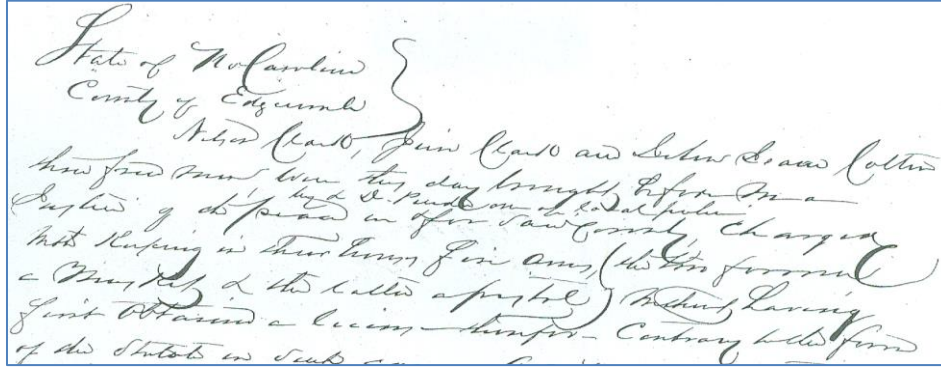 State of No Carolina
County of Edgcumb
Nelson Clark, Jim Clark and Isaac Cotten
three free men, were this day brought before me a
by D. Pender one of the patrol
Justice of the peace in & for said County, Charged
with Keeping in their houses fire arms, (the two former
a Musket & the latter a pistol) without having
first obtained a license therefor - Contrary to the form
of the Statute in such